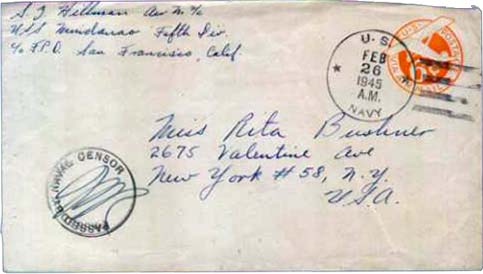 S. J. Hellman AerM 1/c
USS Mindanao Fifth Div.
c/o F.P.O. San Francisco, Calif.
U.S.
FEB
26
1945
A.M.
NAVY
VIA AIR MAIL
6c
Miss Rita Bushner
2675 Valentine Ave
New York #58, N.Y.
USA
PASSED BY NAVAL CENSOR